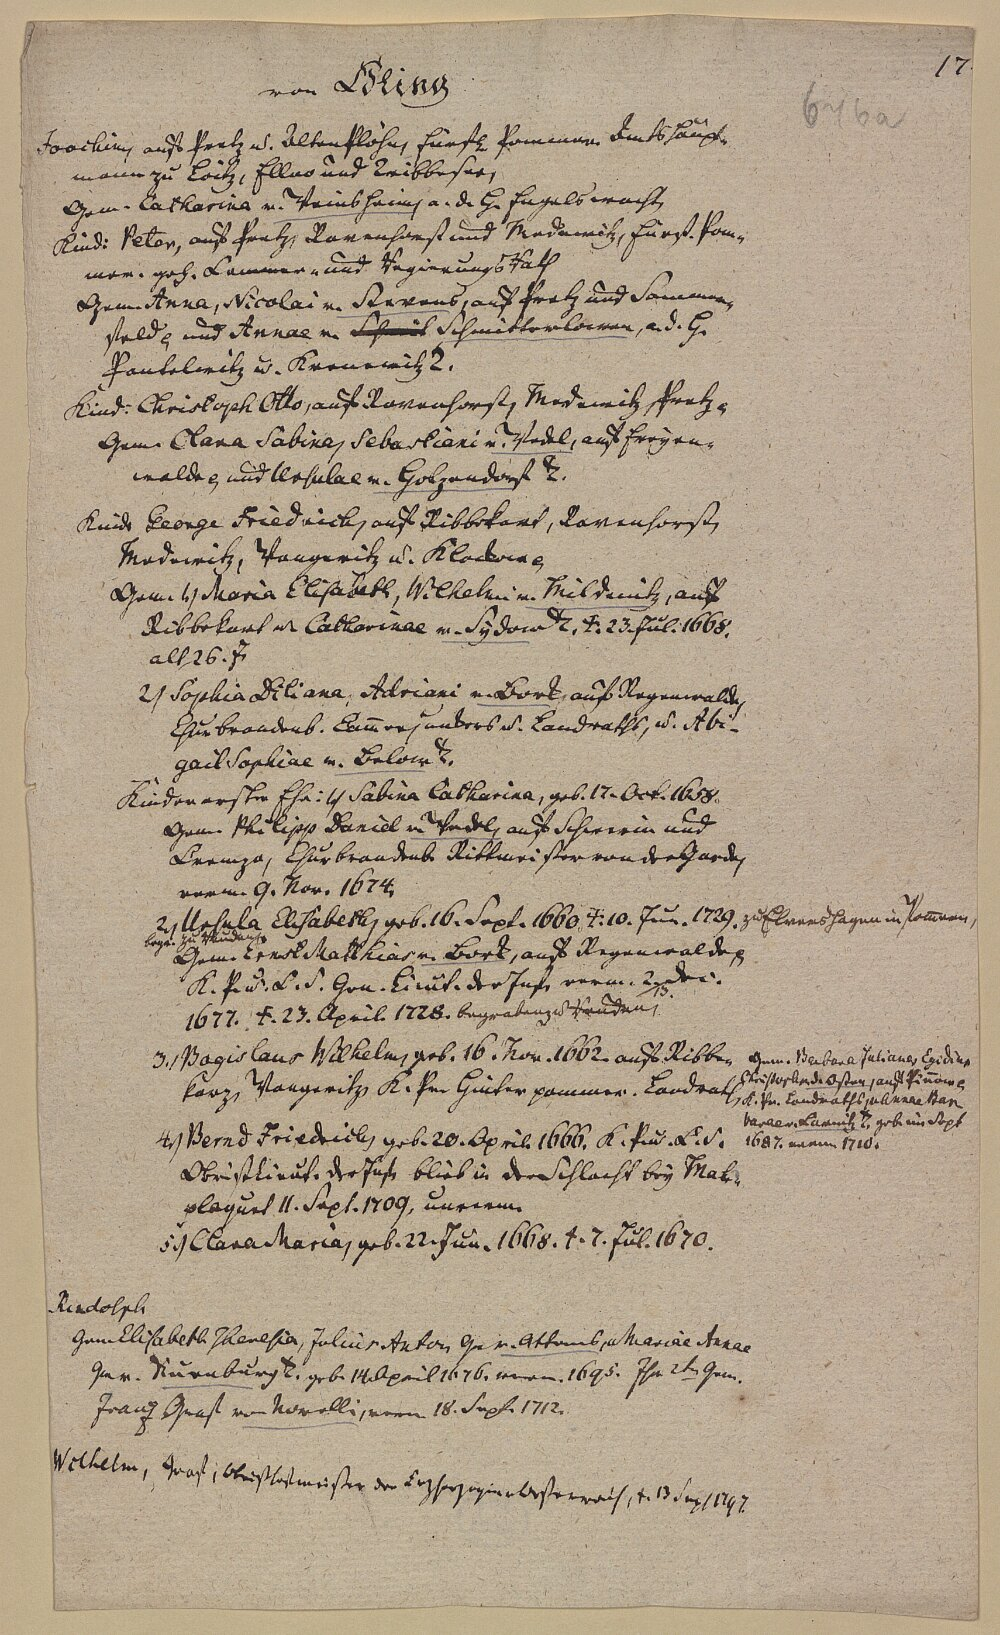 17.
646a
von Bling
Joachim, auf Pretz u. Alten Plöhn, Fürstl. Pommer. Amtshaupt-
mann zu Loitz, und Tribbesees,
Gem. Catharina v. a. d. H. Engelswacht,
Kind: Peter, auf Pretz, Ravenhorst und Medewitz, Fürst. Pom-
mer. geh. Cammer- und Regierungs Rath
Gem. Anna, Nicolai v. Stevens, auf Pretz und Sommer-
feld, und Annae v. Schmitterlowen, a. d. H.
Pantelwitz u. Krenewitz T.
Kind: Christoph Otto, auf Ravenhorst, Medewitz, Pretz,
Gem. Clara Sabina, Sebastiani v. Wedel, auf Freyen-
walde, und Ursulae v. Holzendorf T.
Kind: George Friedrich, auf Ribbekart, Ravenhorst,
Medewitz, Vangeritz u. Kladow,
Gem. 1) Maria Elisabeth, Wilhelmi v. Mildenitz, auf
Ribbekart u. Catharinae v. Sydow T. †. 23. Jul. 1668.
alt 26. J.
2) Sophia Iliana, Adriani v. Bork, auf Regenwalde,
Churbrandenb. u. Landraths, u. Abi-
gail Sophiae v. Below T.
Kinder erster Ehe: 1) Sabina Catharina, geb. 17. Oct. 1658.
Gem. Philipp Daniel v. Wedel, auf Schwerin und
Cremzo, Churbrandenb. Rittmeister von der Garde,
verm. 9. Nov. 1674.
2) Ursula Elisabeth, geb. 16. Sept. 1660, †. 10. Jun. 1729. zu Elvershagen in Pommern,
begr. zu
Gem. Ernst Matthias v. Bork, auf Regenwalde,
K. P. u. C. B. Gen. Lieut. der Inf. verm. 2. Dec.
1677. †. 23. April. 1728. begraben zu 13.
3.) Bogislaus Wilhelm, geb. 16. Nov. 1662. auf Ribbe-
karz, Vangeritz, K. Pr. Hinter pommer. Landrath,
Gem. Barbara Juliana, Egidius
Christoph v. d. Osten, auf Pinnow,
K. Pr. Landraths, u. Annae Bar
barae v. Carnitz T. geb. im Sept
1687. verm. 1710.
4.) Bernd Friedrich, geb. 20. April. 1666. K. P. u. C. B.
Obristlieut. der Inf. blieb in der Schlacht bey Mal-
plaquet 11. Sept. 1709, unverm.
5.) Clara Maria, geb. 22. Jun. 1668. †. 7. Jul. 1670.
Rudolph
Gem. Elisabeth Theresia, Julius Anton, Gr. v. Attems, u. Mariae Annae
Gr. v. Aursburg T. geb. 14. April 1676. verm. 1695. Ihr 2ter Gem.
Franz Graf von Novelli, verm. 18. Sept. 1712.
Wilhelm, Graf, Obristhofmeister der Erzherzogin v. Oesterreich, †. 13 Sept 1797.